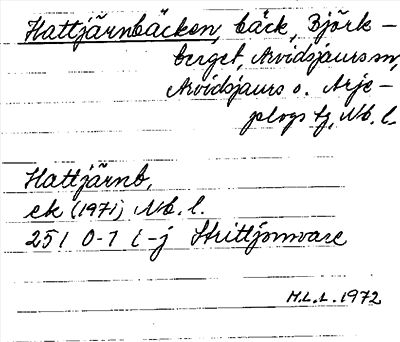 Hattjärnbäcken, bäck, Björk-
berget, Arvidsjaurs sn,
Arvidsjaurs o. Arje-
plogs tg, Nb. l.
Hattjärnb,
ek (1971) Nb. l.
25 I 0-1 i-j Strittjomvare
H.L.L. 1972